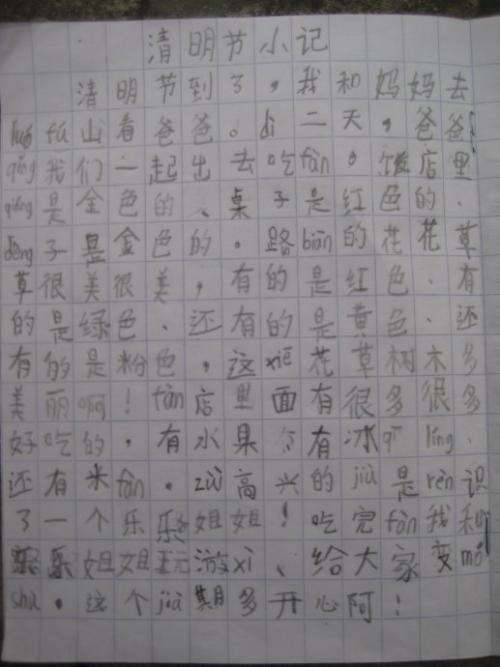 清明节小记
清明节到了,我和妈妈去
luó fú山看爸爸。dì二天,爸爸
qǐng我们一起出去吃fàn。饭店里
qiáng是金色的、桌子是红色的、
dèng子是金色的。路biān的花花草
草很美很美,有的是红色、有
的是绿色、还有的是黄色、还
有的是粉色,这xiē花草树木多
美丽啊!fàn店里面有很多很多
好吃的,有水果、有冰qí líng、
还有米fàn。zuì高兴的jiù是rèn识
了一个乐乐姐姐!吃完fàn我和
乐乐姐姐玩游xì、给大家变mó
shù。这个jià期多开心阿!